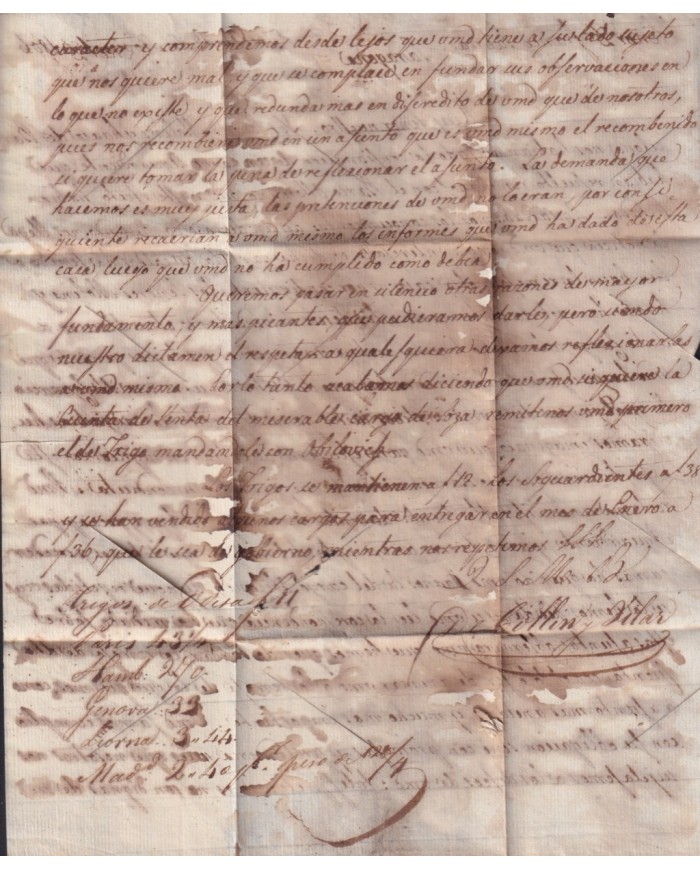 caracter, y comprendemos desde lejos que vmd tiene a su lado sujeto
que nos quiere mal y que se complace en fundar sus observaciones en
lo que no existe y que redunda mas en discredito de vmd que de nosotros,
pues nos recombiene vmd en un asunto que es vmd mismo el recombenido
si quiere tomar la pena de reflexionar el asunto. La demanda que
hacemos es muy justa, las pretenciones de vmd no lo eran, por consi
guiente recaerian a vmd mismo los informes que vmd ha dado de esta
casa luego que vmd no ha cumplido como debia
Queremos pasar en silencio otras razones de mayor
fundamento, y mas picantes que pudieramos darle, pero siendo
nuestro dictamen el respetar a qualesquiera dexamos reflexionarlas
a vmd mismo. Por lo tanto acabamos diciendo que vmd si quiere la
Cuenta de Venta del miserable cargo de Loza remitenos vmd primero
el de Trigo mandamelo con
Los Trigos se mantienen a £12. Los Aguardientes a £38
y se han vendido algunos cargos para entregar en el mes de Enero a
£36, que le sea de gobierno, mientras nos repetimos
Q. S. M. B.
Trigos de Odesa £11
Hamb. 27/0
Genova.. 33
Liorna.. 3..44
Mad.d 2..40 peso de 128/4